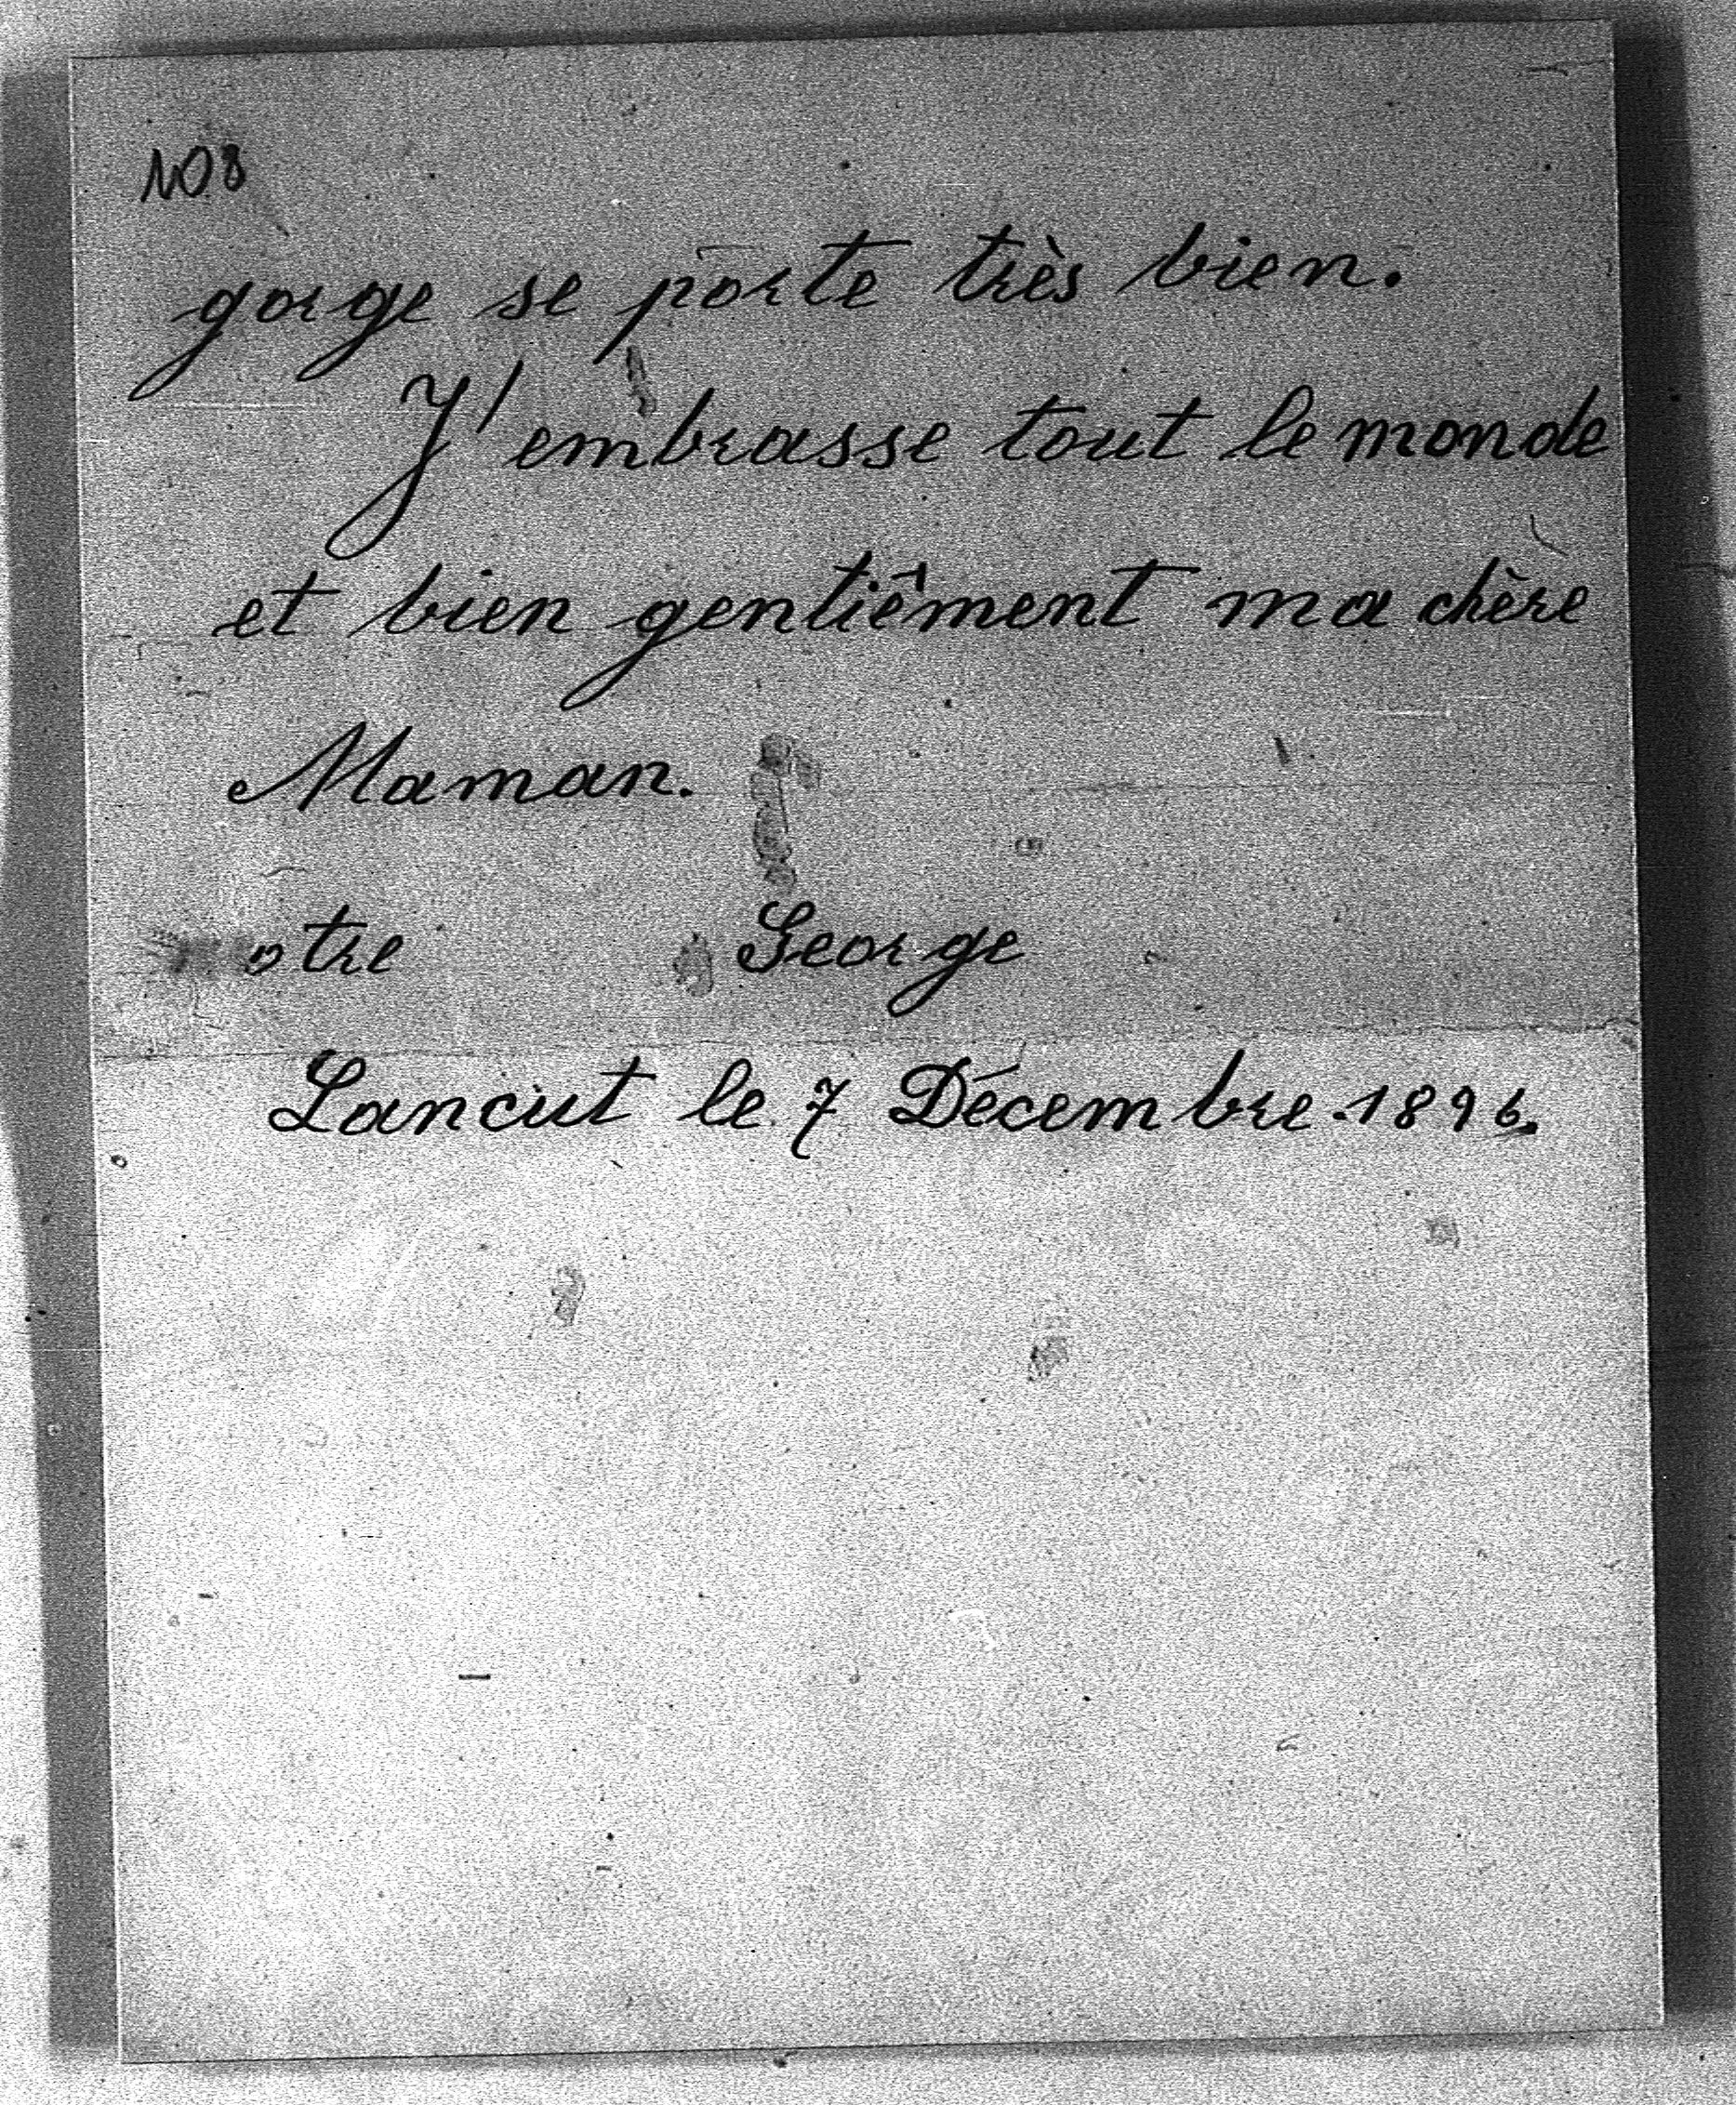 108
gorge se porte très bien.
J'embrasse tout le monde
et bien gentiêment ma chère
Maman.
otre George
Lancut le 7 Décembre 1896.